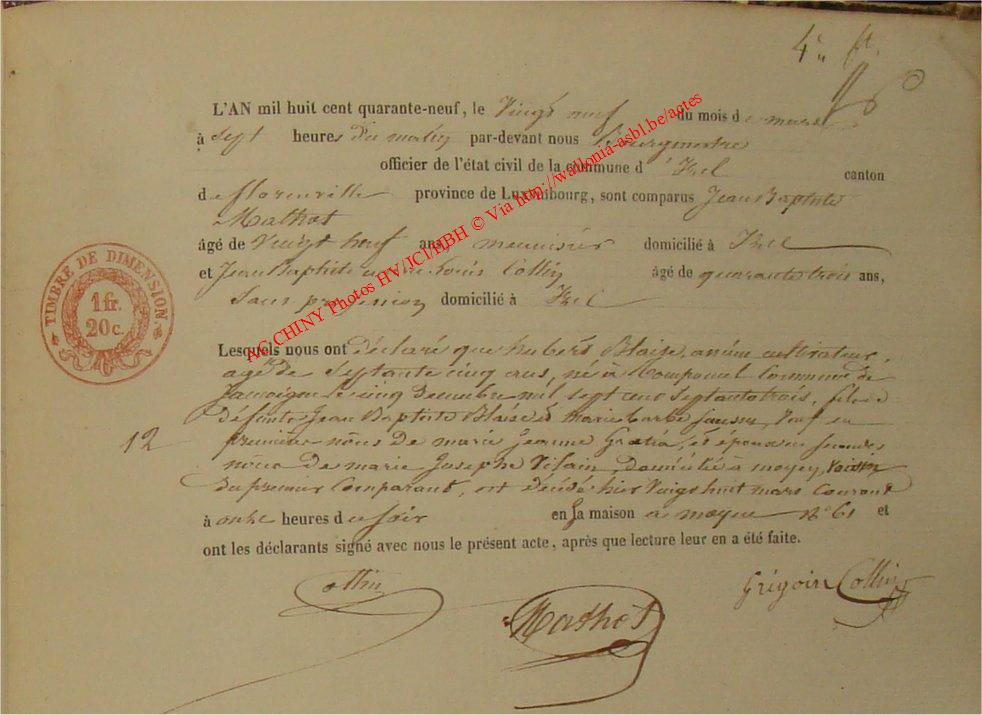 4e
L'AN mil huit cent quarante-neuf, le Vingt neuf du mois de mars
à sept heures du matin par-devant nous Bourgmestre
officier de l'état civil de la commune d'Izel canton
de florenville province de Luxembourg, sont comparus Jean Baptiste
Mathot
âgé de Vingt neuf ans, meunisier domicilié à Izel
et Jean Baptiste Louis Collin âgé de quarante trois ans,
Sans profession domicilié à Izel
Lesquels nous ont déclaré que hubert Blaise, ancien cultivateur,
agé de Septante cinq ans, né à Commune de
Jamoigne le cinq mil sept cent septante trois, fils de
défunts Jean Baptiste Blaise & marie barbe veuf en
premières nôces de marie Jeanne et époux en secondes
nôces de marie Josephe Vilain, domicilié à moyen, voisin
du premier Comparant, est décédé hier Vingt huit mars Courant
à onze heures du soir en sa maison à moyen N° 61 et
ont les déclarants signé avec nous le présent acte, après que lecture leur en a été faite.
12
Collin
Mathot
Grégoire Collin
TIMBRE DE DIMENSION
1 fr.
20 c.
AC CHINY Photos HV/JCI/HBH © Via http://wallonia-asbl.be/actes